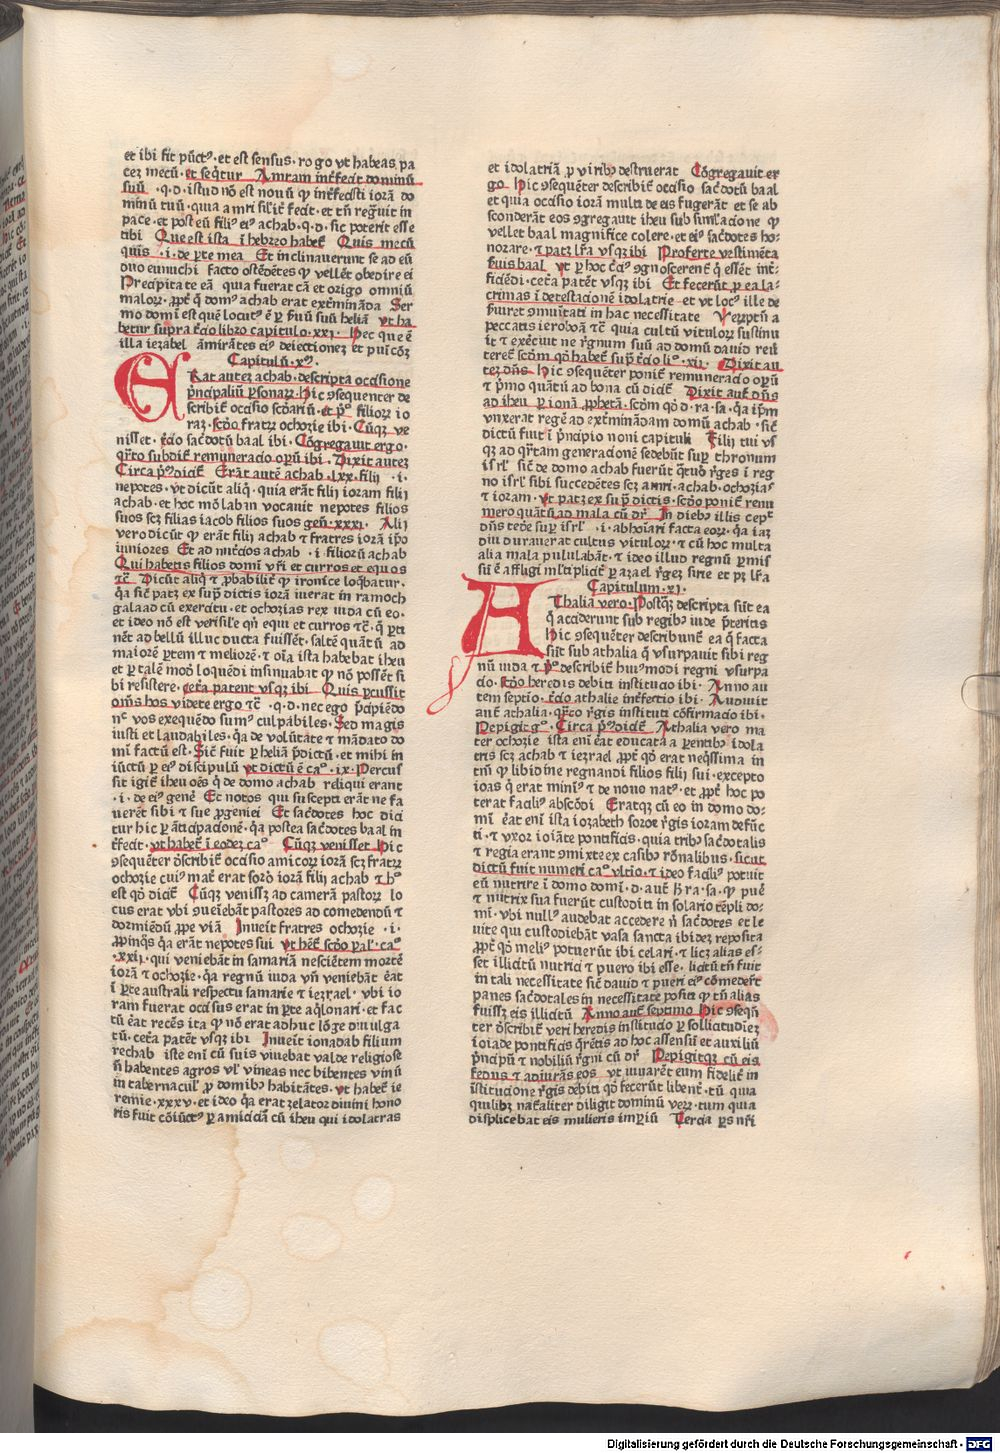 et ibi fit pūctꝰ · et est sensus · rogo vt habeas pa
cez mecū · et seq̄tur Amram int̄fecit dominū
suū · q · d · istud nō est nouū ꝙ int̄fecisti iorā do
minū tuū · quia amri sil̄it̄ fecit · et tn̄ reḡuit in
pace · et post eū filiꝰ eiꝰ achab · q · d · sic poterit esse
tibi Que est ista ī hebreo habet̄ Quis mecū
quis · i · de ꝑte mea Et inclinauerunt se ad eū
duo eunuchi facto ostēdētes ꝙ vellēt obedire ei
Precipitate eā quia fuerat cā et origo omniū
maloꝝ · ꝓpt̄ qd̄ domꝰ achab erat ext̄mināda Ser
mo domī est quē locutꝰ ē ꝑ ẜuū suū heliā vt ha
betur supra t̄cio libro capitulo · xxi · Hec que ē
illa iezabel āmirātes eiꝰ deiectionez et puīcōꝫ
Capitulū · xꝰ.
ERat autez achab · descripta occisione
p̄ncipaliū ꝑsonaꝝ · Hic ꝯsequenter de
scribit̄ occisio scd̄ariū · et pº filioꝝ io
raz · scd̄o fratꝝ ochozie ibi · Cūqꝫ ve
nisset · t̄cio sac̄dotū baal ibi · Cōgregauit ergo ·
q̄rto subdit̄ remuneracio oꝑū ibi · Dixit autez
Circa pº dicit̄ Erāt autē achab · lxx · filij · i ·
nepotes · vt dicūt aliq̄ · quia erāt filij ioram filij
achab · et hoc mō laban vocauit nepotes filios
suos scꝫ filias iacob filios suos gen̄ · xxxi · Alij
vero dicūt ꝙ erāt filij achab ⁊ fratres iorā ip̄o
iuniores Et ad nut̄cios achab · i filioꝝ achab
Qui habetis filios domī vr̄i et curros et equos
⁊c̄ Dicūt aliq̄ ⁊ ꝓbabilit̄ ꝙ ironice loq̄batur ·
q̄a sic̄ patꝫ ex sup̄ dictis iorā iuerat in ramoch
galaad cū exercitu · et ochozias rex iuda cū eo ·
et ideo nō est verisil̄e qn̄ equi et curros ⁊c̄ · q̄ ꝑti
nēt ad bellū illuc ducta fuissēt · saltē quātū ad
maiorē ꝑtem ⁊ meliorē · ⁊ oīa ista habebat iheu
et ꝑ talē modū loquēdi insinuabat ꝙ nō possēt si
bi resistere · cet̄a patent vsqꝫ ibi Quis ꝑcussit
om̄s hos videte ergo ⁊c̄ · q · d · nec ego p̄cipiēdo
nᶜ vos exequēdo sumꝰ culpabiles · Sed magis
iusti et laudabiles · q̄a de volūtate ⁊ mādato do
mī factū est · Sic̄ fuit ꝑ heliā p̄dictū · et mihi in
iūctū ꝑ eiꝰ discipulū vt dictū ē caº · ix · Percus
sit igit̄ iheu oēs q̄ de domo achab reliqui erant
· i · de eiꝰ gene Et notos qui suscepti erāt ne fa
uerēt sibi ⁊ sue ꝓgeniei Et sac̄dotes hoc dici
tur hic ꝑ āticipacionē · q̄a postea sac̄dotes baal in
t̄fecit · vt habet̄ ī eodez caº Cūqꝫ venisset Hic
ꝯsequēter d̄scribit̄ occisio amicoꝝ iorā scꝫ fratꝝ
ochozie cuiꝰ mat̄ erat soror iorā filij achab ⁊ hº
est qd̄ dicit̄ Cūqꝫ venissꝫ ad camerā pastoꝝ lo
cus erat vbi ꝯueiēbāt pastores ad comedendū ⁊
dormiēdū ꝓpe viā Inueit fratres ochozie · i ·
ꝓpinq̄s q̄a erāt nepotes sui vt het̄ scd̄o ꝑal' · caº
· xxij · qui veniebāt in samariā nesciētem mortē
iorā ⁊ ochozie · q̄a regnū iuda vn̄ veniebāt ēat
ī ꝑte australi respectu samarie ⁊ iezrael · vbi io
ram fuerat occisus erat in ꝑte aq̄lonari · et fac
tū ēat recēs ita ꝙ nō erat adhuc lōge diuulga
tū · cet̄a patēt vsqꝫ ibi Inueit ionadab filium
rechab iste eni cū suis viuebat valde religiose
n̄ habentes agros vl' vineas nec bibentes vinū
in tabernacul' ꝓ domibꝰ habitātes · vt habet̄ ie
remie · xxxv · et ideo q̄a erat zelator diuini hono
ris fuit cōiūctꝰ ꝑ amiciciā cū iheu qui idolatras
et idolatriā ꝓ viribꝰ destruerat Cōgregauit er
go Hic ꝯsequēter describit̄ occisio sac̄dotū baal
et quia occisio iorā multi de eis fugerāt et se ab
sconderāt eos ꝯgregauit iheu sub simil'acione ꝙ
vellet baal magnifice colere · et eiꝰ sac̄dotes ho-
norare · ⁊ patꝫ lr̄a vsqꝫ ibi Proferte vestimēta
ẜuis baal vt ꝑ hoc c̄ciꝰ ꝯgnoscerent̄ q̄ essēt int̄-
ficiēdi · cet̄a patēt vsqꝫ ibi Et fecerūt ꝑ ea la-
crimas ī detestacionē idolatrie · et vt locꝰ ille de
ẜuiret ꝯmuītati in hac necessitate Verptū a
peccatis ieroboā ⁊c̄ quia cultū vituloꝝ sustinu
it ⁊ exercuit ne r̄gnum suū ad domū dauid reūt̄
teret̄ scd̄m qd̄ habet̄ sup̄ t̄cio liº · xij · Dixit au
tez dn̄s Hic ꝯsequēter ponit̄ remuneracio oꝑū
⁊ pº quātū ad bona cū dicit̄ Dixit aut̄ dn̄s
ad iheu ꝑ ionā ꝓphetā · scd̄m qd̄ · ra · sa · q̄a ip̄m
vnxerat regē ad ext̄minādam domū achab · sic̄
dictū fuit ī p̄ncipio noni capituli Filij tui vs
qꝫ ad q̄rtam generacionē sedebūt suꝑ thronum
isrl' sic̄ de domo achab fuerūt q̄tuor r̄ges ī reg
no isrl' sibi succedētes scꝫ amri · achab · ochozias
⁊ ioram · vt patꝫ ex sup̄ dictis · scd̄o ponit̄ remu
nero quātū ad mala cū dr̄ In diebꝰ illis cepꝰ
dn̄s tedē suꝑ isrl' · i · abhoīari facta eoꝝ · q̄a iaꝫ
diu durauerat cultus vituloꝝ · ⁊ cū hoc multa
alia mala pululabāt · ⁊ ideo illud regnū ꝑmis
sū ē affligi ml'tiplicit̄ ꝑ azael r̄gez sirie et pꝫ lr̄a
Capitulum · xi ·
AThalia vero · Postq̄ꝫ descripta sūt ea
q̄ acciderunt sub regibꝰ iude p̄teritis
Hic ꝯsequēter describunt̄ ea q̄ facta
sūt sub athalia q̄ vsurpauit sibi reg
nū iuda ⁊ pº describit̄ huiꝰmodi regni vsurpa
cio · scd̄o heredis debiti institucio ibi · Anno au
tem septīo · t̄cio athalie int̄fectio ibi · Audiuit
aut̄ athalia · q̄rto r̄gis instituti cōfirmacio ibi ·
Pepigit gº · Circa pº dicit̄ · Athalia vero ma
ter ochozie ista eni ēat educata a ꝑentibꝰ idola
tris scꝫ achab ⁊ iezrael · ꝓpt̄ qd̄ erat neq̄ssima in
tm̄ ꝙ libidine regnandi filios filij sui · excepto
ioas q̄ erat minimꝰ ⁊ de nouo natꝰ · et ꝓpt̄ hoc po
terat faciliꝰ abscōdi Eratqꝫ cū eo in domo do-
mī ēat eni ista iozabeth soror r̄gis ioram defūc
ti · ⁊ vxor ioiāte pontificis · quia tribꝰ sac̄dotalis
⁊ regia erant ꝯmixte ex casibꝰ rōnalibus · sicut
dictū fuit numeri caº vltīo · ⁊ ideo faciliꝰ potuit
eū nutrire ī domo domī · d · aut̄ Ra · sa · ꝙ puer̄
⁊ nutrix sua fuerūt custoditi in solario tēpli do-
mī · vbi nullꝰ audebat accedere n̄ sac̄dotes et le
uite qui custodiebāt vasa sancta ibidez reposita
ꝓpt̄ qd̄ meliꝰ potuerūt ibi celari · ⁊ licꝫ alias es-
set illicitū nutrici ⁊ puero ibi esse · licitū tn̄ fuit
in tali necessitate sic̄ dauid ⁊ pueri eiꝰ comedert̄
panes sac̄dotales in necessitate posita ꝙ tn̄ alias
fuissꝫ eis illicitū Anno aut̄ septimo Hic ꝯseqn̄
ter d̄scribit̄ veri heredis institucio ꝑ sollicitudiez
ioiade pontificis q̄retis ad hoc assensū et auxiliū
p̄ncipū ⁊ nobiliū r̄gni cū dr̄ Pepigitqꝫ cū eis
fedus ⁊ adiurās eos vt iuuarēt eum fidelit̄ in
īstitucione r̄gis debiti qd̄ fecerūt libent̄ · tū quia
quilibꝫ nat̄aliter diligit dominū veꝝ · tum quia
displicebat eis mulieris imperiū Tercia ꝑs nr̄i
Digitalisierung gefördert durch die Deutsche Forschungsgemeinschaft - DFG